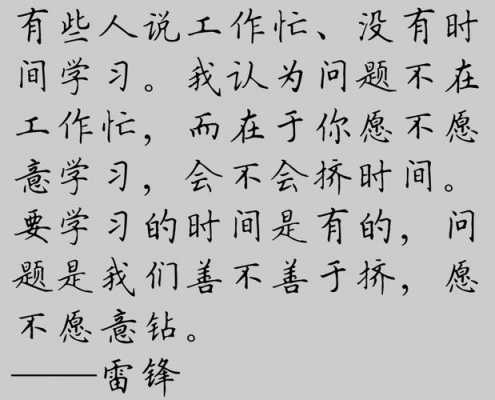 有些人说工作忙、没有时
间学习。我认为问题不在
工作忙，而在于你愿不愿
意学习，会不会挤时间。
要学习的时间是有的，问
题是我们善不善于挤，愿
不愿意钻。
——雷锋